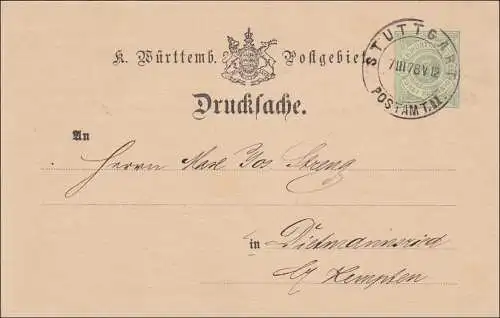 K. Württemb. Postgebiet
STUTTGART
7 III 78 V 12
POSTAMT. II
Drucksache.
An
Herrn Max Jos Streng
in Dietmannsried
b/ Kempten